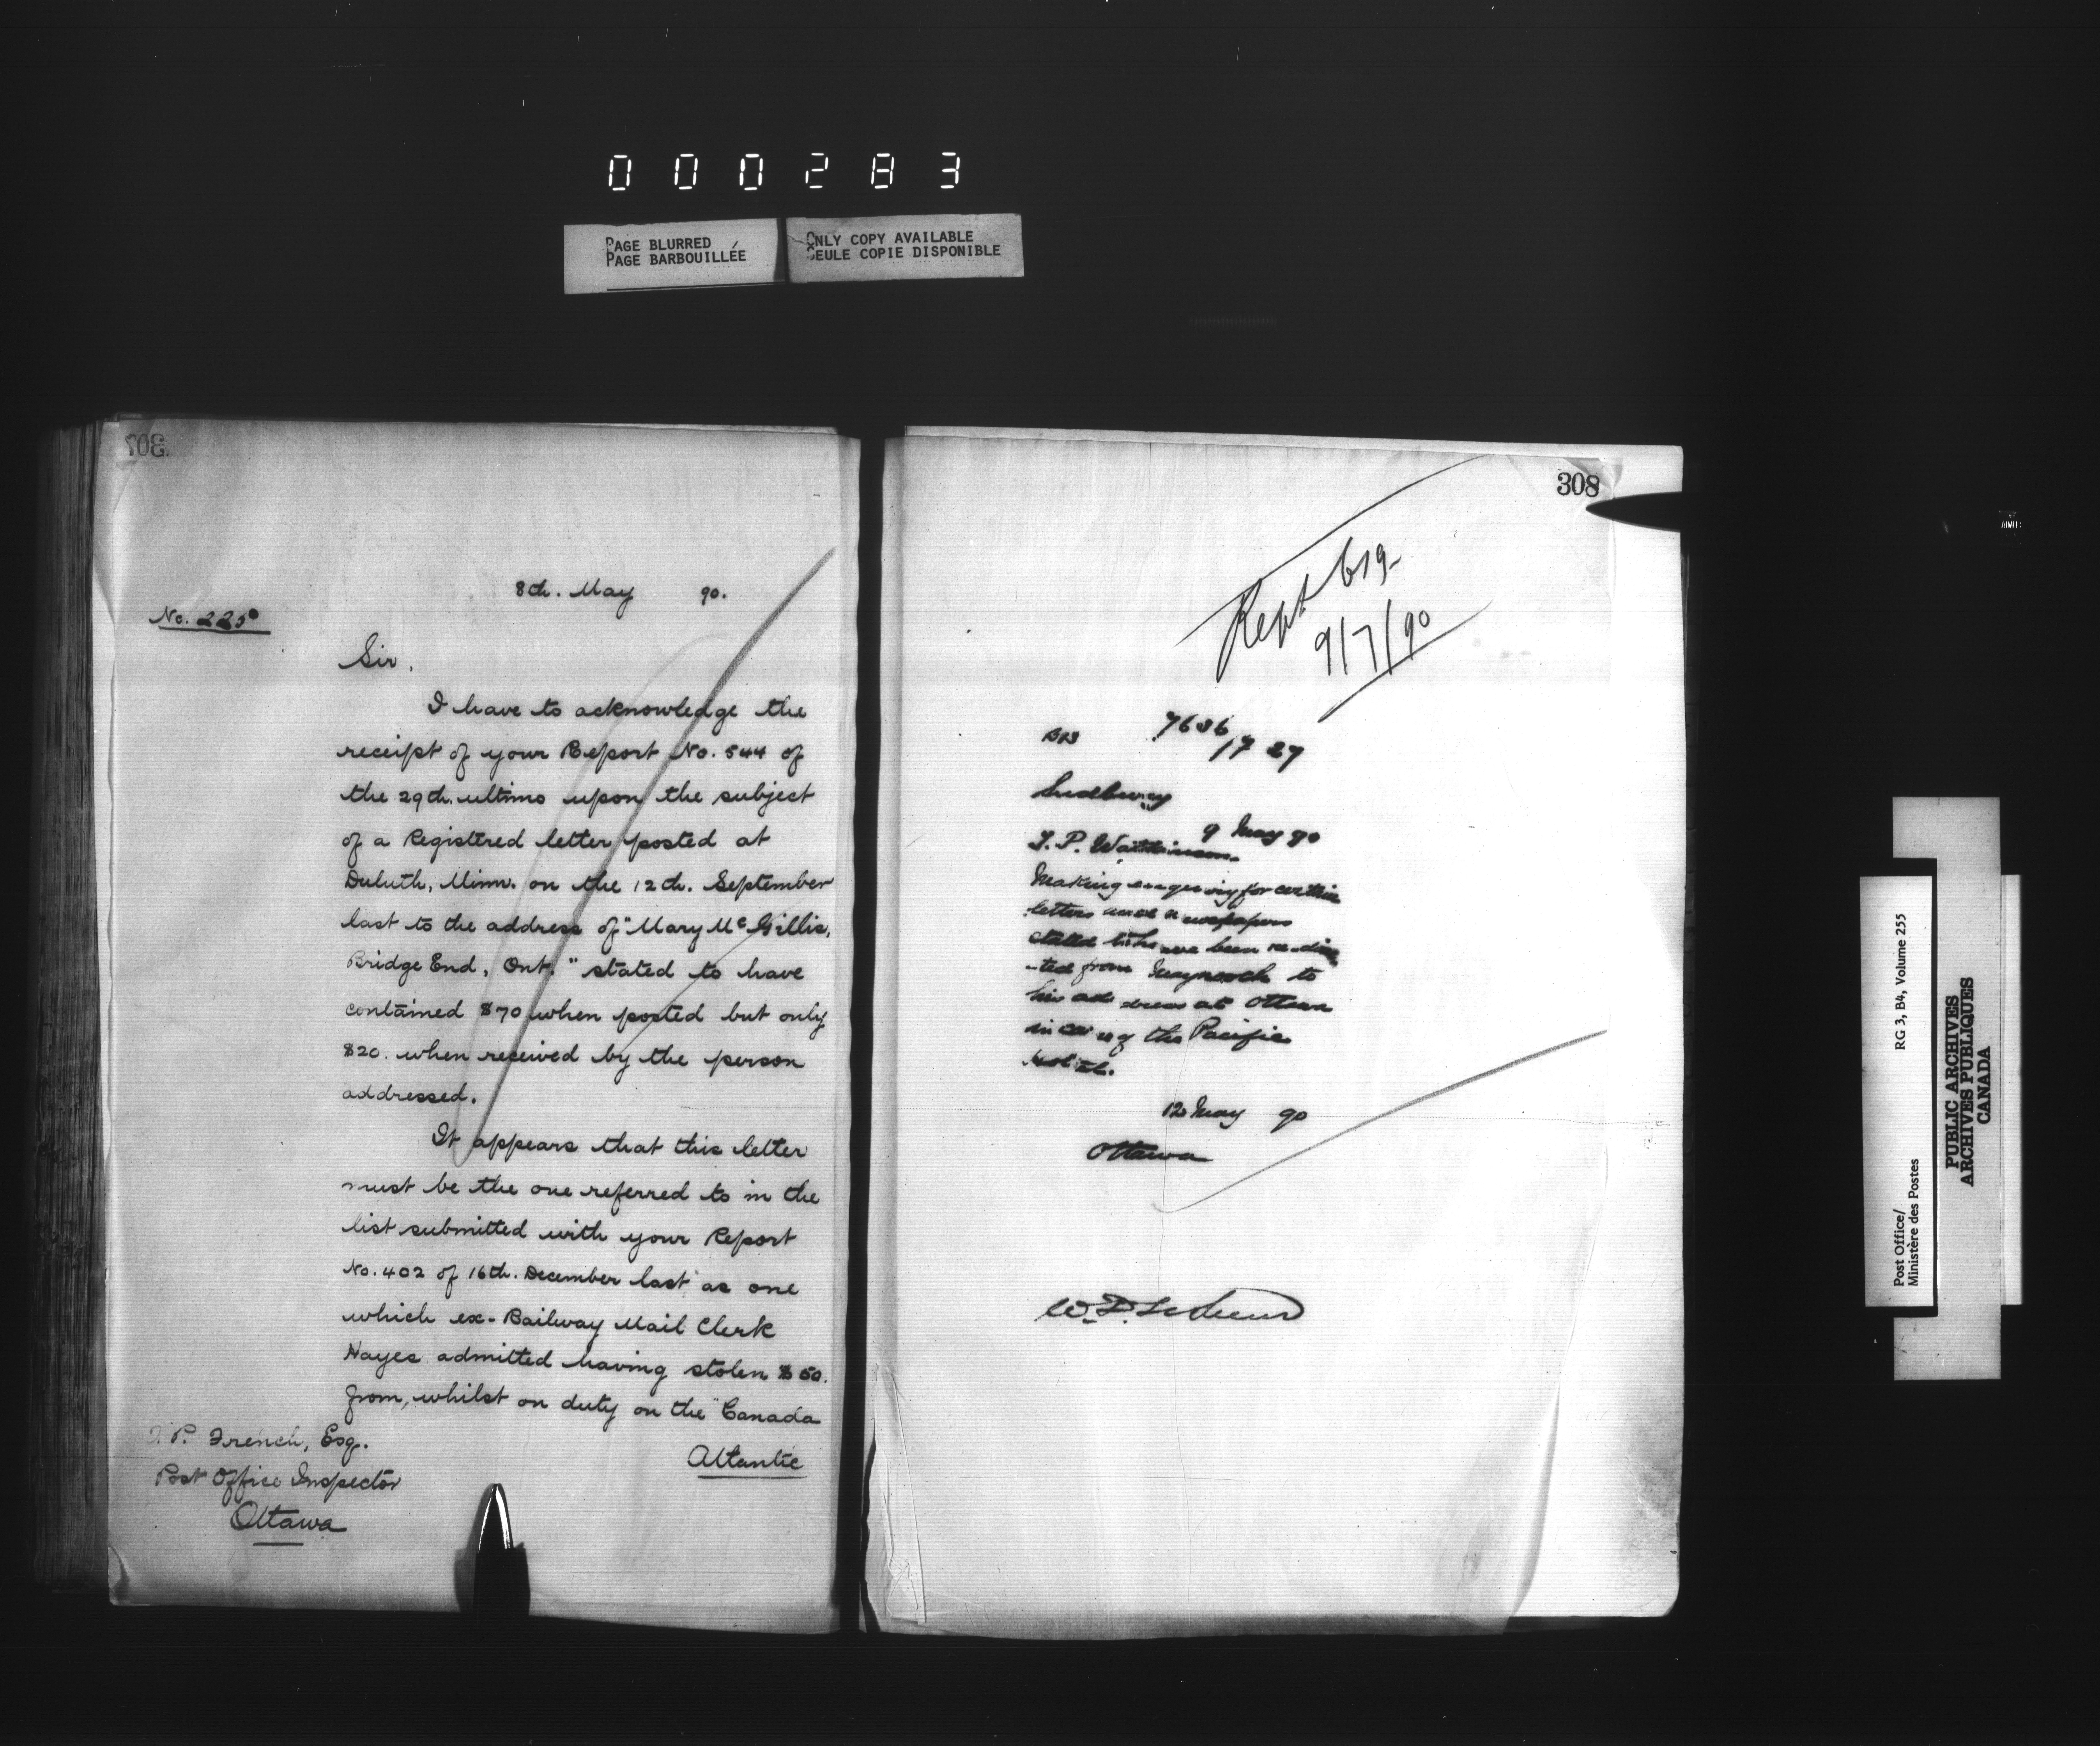 000283
PAGE BLURRED
PAGE BARBOUILLÉE
ONLY COPY AVAILABLE
SEULE COPIE DISPONIBLE
307
8th. May 90.
No. 225
Sir,
I have to acknowledge the
receipt of your Report No. 544 of
the 29th. ultimo upon the subject
of a Registered letter posted at
Duluth, Minn. on the 12th. September
last to the address of "Mary McGillis,
Bridge End, Ont." stated to have
contained $70 when posted but only
$20. when received by the person
addressed.
It appears that this letter
must be the one referred to in the
list submitted with your Report
No. 402 of 16th. December last as one
which ex-Railway Mail Clerk
Hayes admitted having stolen $50.
from, whilst on duty on the "Canada
Atlantic
T. P. French, Esq.
Post Office Inspector
Ottawa
308
Rept 619
9/7/90
7636
17 27
Sudbury
9 May 90
Making enquiry for certain
letters and newspapers
stated to have been re-direc
-ted from Maynooth to
his address at Ottawa
in care of the Pacific
Hotel.
12 May 90
Ottawa
Post Office/
Ministère des Postes
RG 3, B4, Volume 255
PUBLIC ARCHIVES
ARCHIVES PUBLIQUES
CANADA